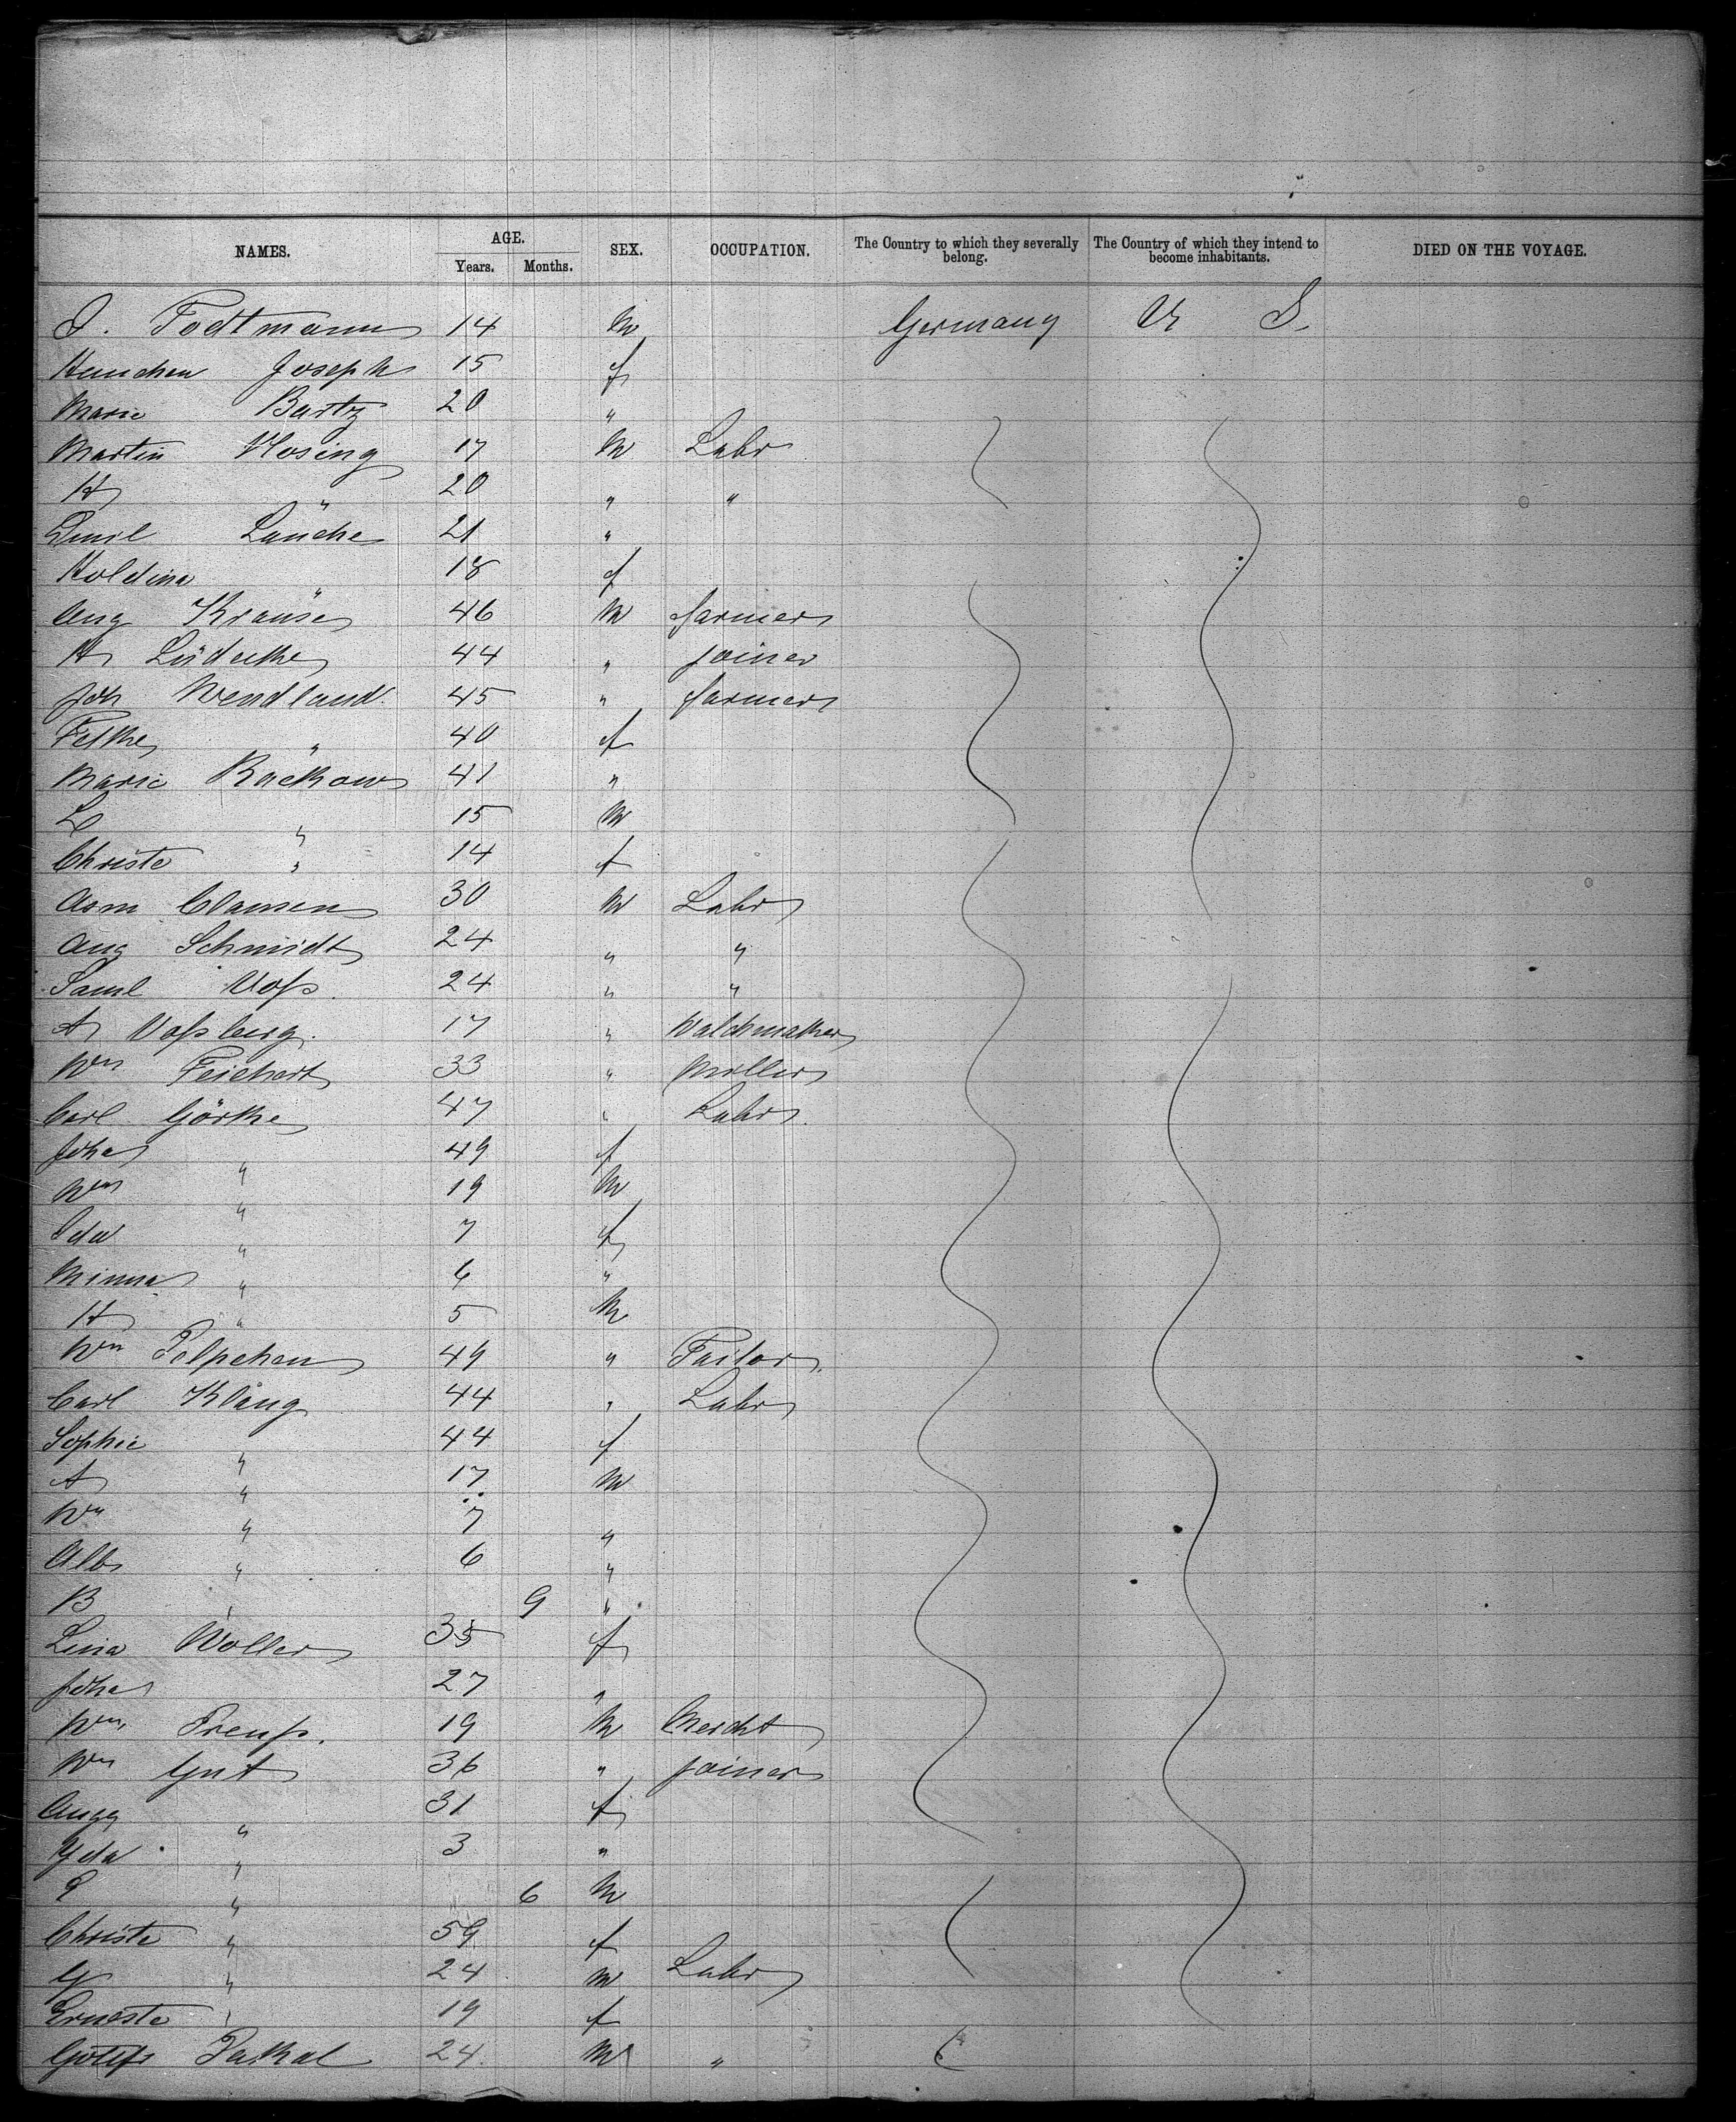 NAMES. AGE. Years. Months. SEX. OCCUPATION. The Country to which they severally belong. The Country of which they intend to become inhabitants. DIED ON THE VOYAGE.
J. Todtmann 14 m Germany U S.
Hanchen Joseph 15 f
Marie Bartz 20 "
Martin Klosing 17 m Labr
H " 20 " "
Emil Lauche 21 "
Holdina " 18 f
Aug Krause 46 m farmer
H Lüdecke 44 " joiner
Joh Wendland. 45 " farmer
Fetke " 40 f
Marie Rackow 41 "
L " 15 m
Christe " 14 f
Asm Clamen 30 m Labr
Aug Schmidt 24 " "
Saml Voss 24 " "
A Vossberg. 17 " Watchmaker
Wm Feichert 33 " Miller
Carl Görke 47 " Labr.
Joha " 49 f
Wm " 19 m
Ida " 7 f
Minna " 6 "
H " 5 m
Wm Polpehen 49 " Tailor.
Carl Klang 44 " Labr
Sophie " 44 f
A " 17 m
Wm " 7 "
Alb " 6 "
B " 9 "
Lina Woller 35 f
Joha 27 "
Wm Preuss. 19 m Mercht
Wm Gut 36 " joiner
Aug " 31 f
Ida " 3 "
" 6 m
Christe " 59 f
G " 24 m Labr
Erneste " 19 f
Paskal 24. m "